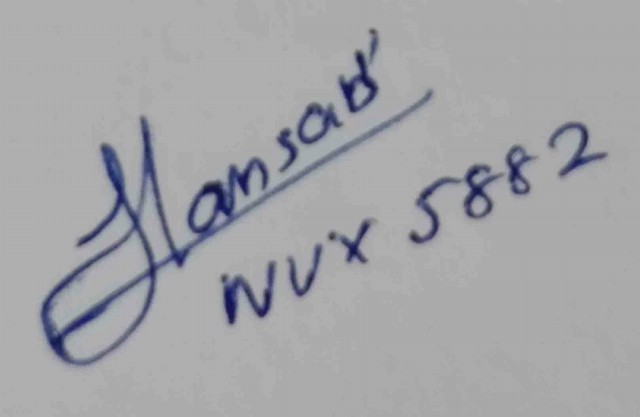 Hansab
NUX 5882